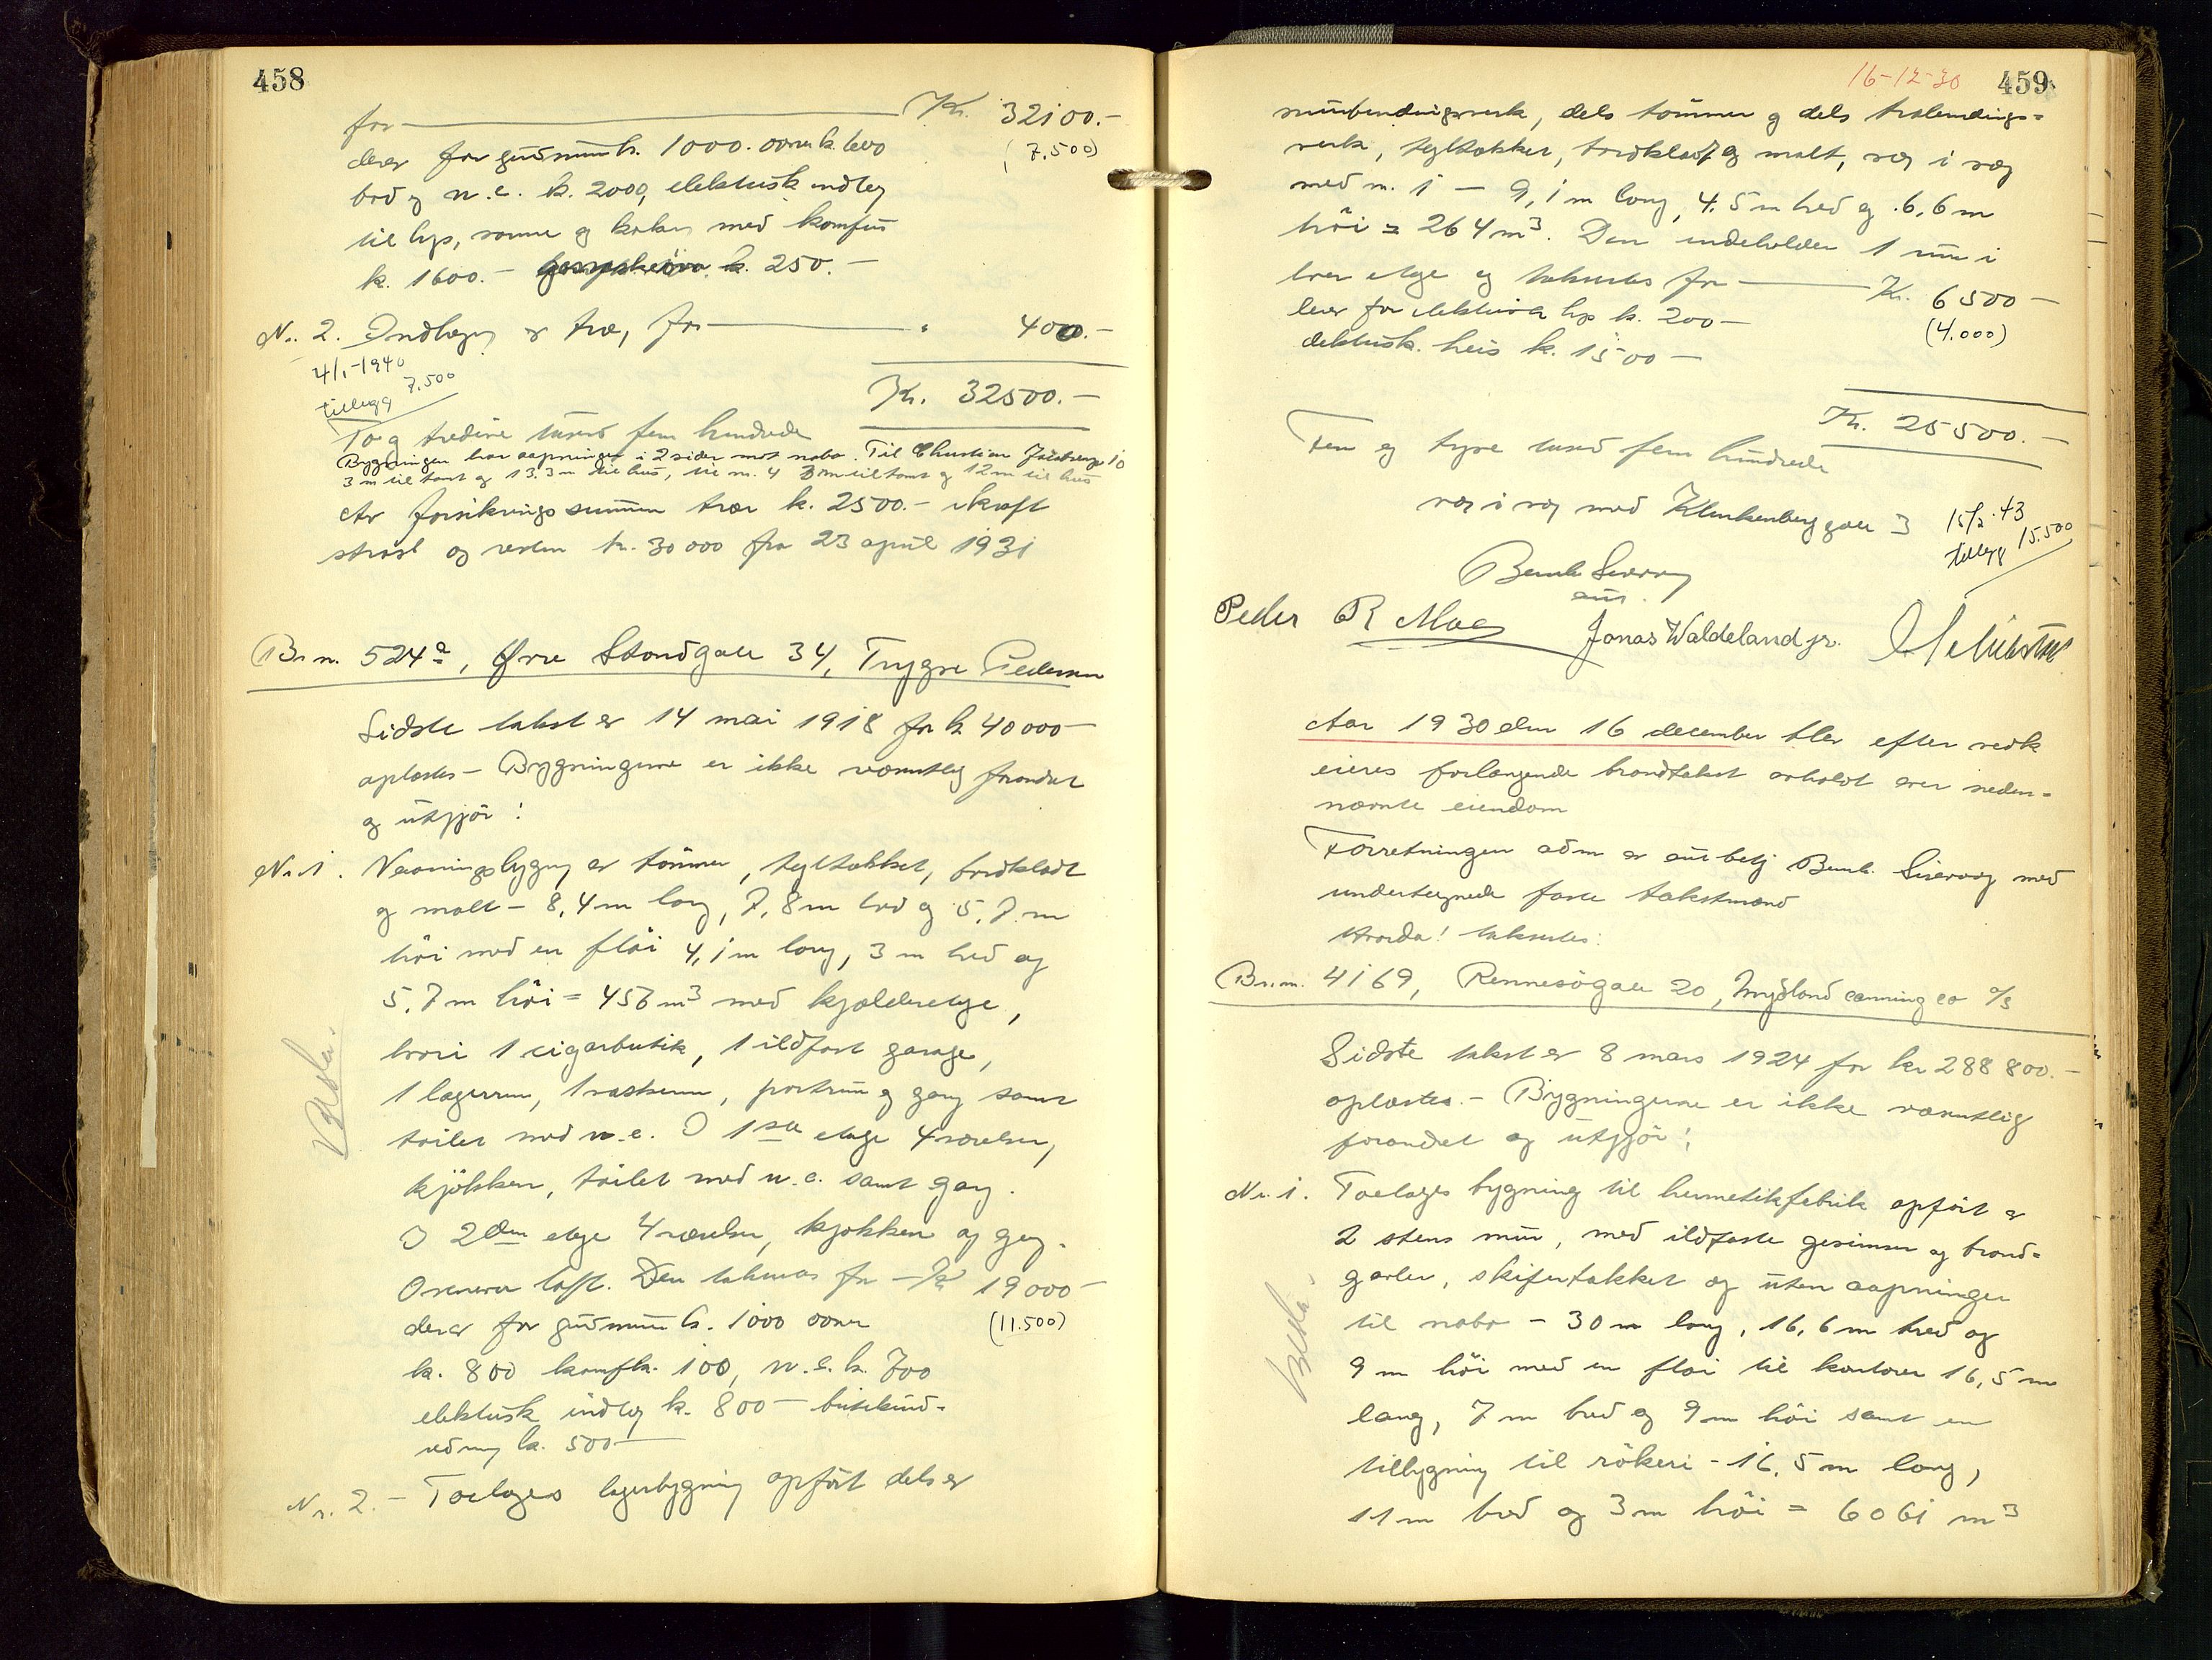 458
for Kr. 32100.-
derav for grudmur kr. 1000. ovner k. 600 (7.500)
bad og w.c. k. 2000, elektrisk indlæg
til lys, varme og kokn med komfur
k. 1600.- k. 250.-
Nr. 2. Indhegning av træ, for " 400.-
4/1-1940
tillegg 7.500
Kr. 32500.-
To og tredive tusend fem hundrede
Bygningen har aapninger i 2 sider mot nabo. Til Christian
3 m til tomt og 13.3 m til hus, til nr. 4 3m til tomt og 12 m til hus
Av forsikringssummen træ k. 2500.- ikraft
straks og resten kr. 30000 fra 23 april 1931
Br.n. 524a, Øvre Strandgate 34, Trygve Pedersen
Sidste takst er 14 mai 1918 for k 40000-
oplæstes - Bygningerne er ikke væsentlig forandret
og utgjør:
Nr. 1. Vaaningsbygning av tømmer, tegltækket, bordklædt
og malt - 8,4 m lang, 7,8 m bred og 5,7 m
høi med en fløi 4,1 m lang, 3 m bred og
5,7 m høi = 457 m³ med kjælderetage,
hvori 1 cigarbutik, 1 ildfast garage,
1 lagerrum, 1 vaskerum, portrum og gang samt
toilet med w.c. I 1ste etage 4 værelser,
kjøkken, toilet med w.c. samt gang.
I 2den etage 4 værelser, kjøkken og gang.
Ovenover loft. Den takseres for - Kr 19000-
derav for grudmur k. 1000 ovner (11.500)
k. 800 komf k. 100, w.c. k. 700
elektrisk indlæg k. 800 - butikind-
redning k. 500-
Nr. 2. - Toetages lagerbygning opført dels av
16-12-30 459
murbindingsverk, dels tømmer og dels træbindings-
verk, tegltækket, bordklædt og malt, væg i væg
med nr. 1 - 9,1 m lang, 4.5 m bred og 6,6 m
høi = 264 m³. Den indeholder 1 rum i
hver etage og takseres for Kr. 6500-
derav for elektrisk lys k. 200- (4.000)
elektrisk heis k. 1500-
Kr. 25500.-
Fem og tyve tusend fem hundrede
væg i væg med Klinkenberg gate 3
15/2-43
tillegg 15.500
Bernh Sivervåg
aut.
Peder R Moe Jonas Waldeland jr.
Aar 1930 den 16 december blev efter vedk
eieres forlangende brandtakst avholdt over neden-
nævnte eiendom
Forretningen adm av aut betj Bernh. Sivervåg med
undertegnede faste takstmænd
Hvorda! takseres:
Br.nr. 4169, Rennesøgate 20, Mydland canning co a/s
Sidste takst er 8 mars 1924 for kr 288800.-
oplæstes.- Bygningerne er ikke væsentlig
forandret og utgjør:
Nr. 1. Toetages bygning til hermetikfabrik opført av
2 stens mur, med ildfaste gesimser og brand-
gavler, skifertækket og uten aapninger
til nabo - 30 m lang, 16,6 m bred og
9 m høi med en fløi til kontorer 16,5 m
lang, 7 m bred og 9 m høi samt en
tilbygning til røkeri - 16,5 m lang,
11 m bred og 3 m høi = 6061 m³